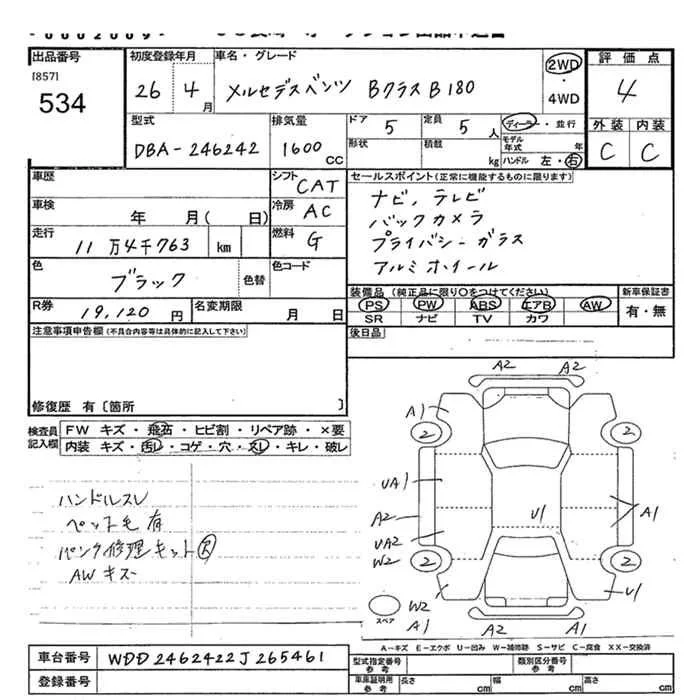 出品番号
[857]
534
初度登録年月
26 4月
車名・グレード
メルセデスベンツ BクラスB180
2WD
・
4WD
評価点
4
型式
DBA-246242
排気量
1600 CC
ドア 5
定員 5 人
形状
積載 kg
ディーラー・並行
モデル年式 年
ハンドル 左・右
外装 内装
C C
車歴
シフト CAT
車検 年 月( 日)
冷房 AC
走行 11万4千763 km
燃料 G
色 ブラック 色替
色コード
R券 19,120 円
名変期限 月 日
セールスポイント(正常に機能するものに限ります)
ナビ、テレビ
バックカメラ
プライバシーガラス
アルミホイール
装備品(純正品に限り○をつけてください)
PS PW ABS エアB AW
SR ナビ TV カワ
新車保証書
有・無
後日品
注意事項申告欄(不具合内容等は具体的に記入して下さい)
修復歴 有〔箇所 〕
検査員記入欄
FW キズ・飛石・ヒビ割・リペア跡・×要
内装 キズ・汚レ・コゲ・穴・スレ・キレ・破レ
ハンドルスレ
ペット毛有
パンク修理キットR
AWキズ
A2 A2
A1
2 2
UA1
U1
A2 A1
UA2
W2 2 2
U1
スペア
W2
A1 A2 A1
A-キズ E-エクボ U-凹み W-補修跡 S-サビ C-腐食 XX-交換済
車台番号 WDD2462422J265461
登録番号
型式指定番号 参考
類別区分番号 参考
車庫証明用 参考
長さ cm 幅 cm 高さ cm